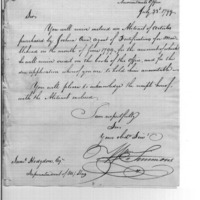 Accountant's Office
July 22d 1799.
Sir,
You will receive enclosed an Abstract of Articles
purchased by Joshua Agent of Fortifications for
in the month of June 1799. for the amount of which
he will receive credit on the books of this Office, and for the
application of which you are to hold him accountable.
You will please to acknowledge the receipt hereof
with the Abstract enclosed.
I am respectfully
Sir,
Your Obt. Servt.
Wm Simmons
Saml. Hodgdon Esqr.
Superintendent of My. Sts.